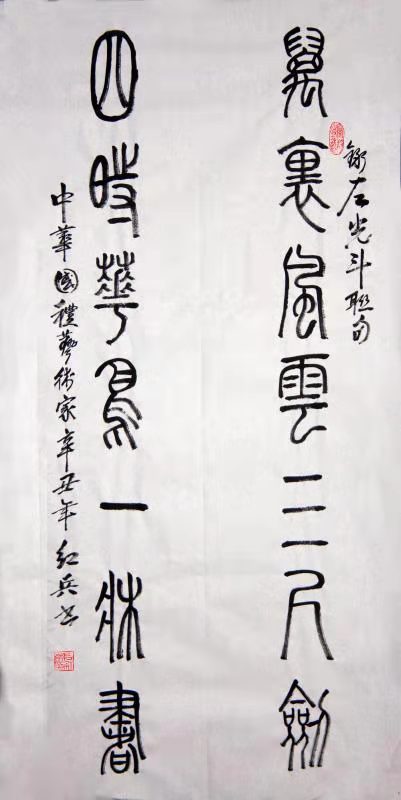 錄左光斗聯句
萬裏風雲三尺劍
四時華鳥一牀書
中華國禮藝術家辛丑年紅兵書